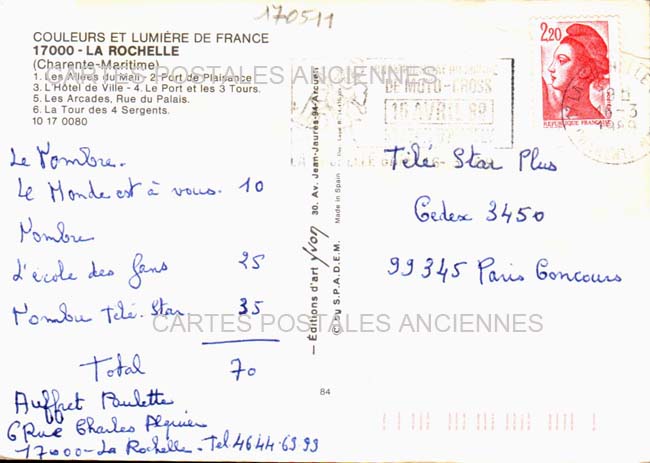 170511
COULEURS ET LUMIÈRE DE FRANCE
17000 - LA ROCHELLE
(Charente-Maritime)
1. Les Allées du Mail - 2. Port de Plaisance
3. L'Hôtel de Ville - 4. Le Port et les 3 Tours.
5. Les Arcades, Rue du Palais.
6. La Tour des 4 Sergents.
10 17 0080
CARTES POSTALES ANCIENNES
Le Nombre.
Le Monde est à vous. 10
Nombre
L'école des fans 25
Nombre Télé-Star 35
Total 70
Auffret Paulette
6 Rue Charles
17000 - La Rochelle - Tel 46 44.63 99
— Éditions d'art yvon 30. Av. Jean-Jaurès-94-Arcueil
© by S.P.A.D.E.M. Made in Spain
84
DE MOTO-CROSS
16 AVRIL 89
2,20
LIBERTE DE GANDON
REPUBLIQUE FRANÇAISE
16-3
1989
Télé Star Plus
Cedex 3450
99345 Paris Concours
CARTES POSTALES ANCIENNES